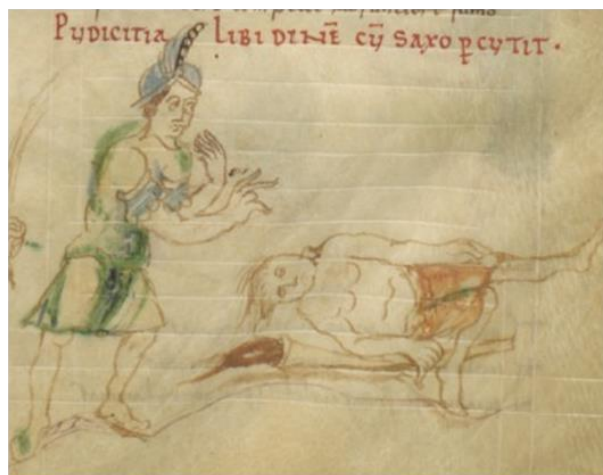 PUDICITIA LIBIDINĒ CŪ SAXO ꝑCUTIT·